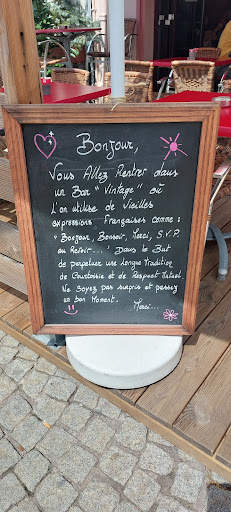 Bonjour,
Vous Allez Rentrer dans
un Bar "Vintage" où
L'on utilise de Vieilles
expressions Françaises comme :
"Bonjour, Bonsoir, Merci, S.V.P.
au Revoir...." Dans le But
de perpetuer une Longue Tradition
de Courtoisie et de Respect Mutuel
Ne soyez pas surpris et passez
un bon Moment. Merci...